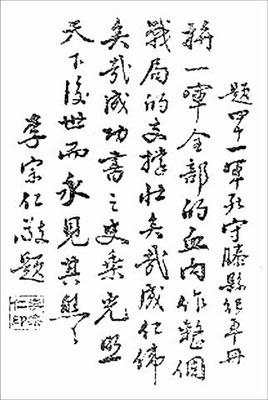 題四十一軍死守滕縣紀事冊
拚一軍全部的血肉作整個
戰局的支撐壯矣哉成仁偉
矣哉成功書之史乘光照
天下後世而永見其熊々
李宗仁敬題
李宗仁印